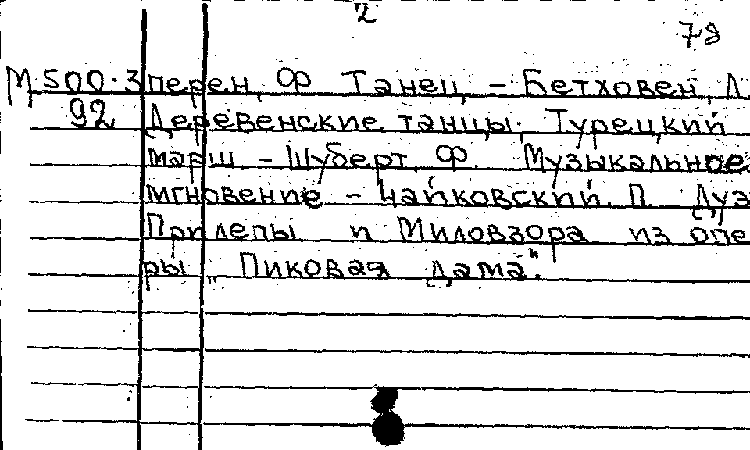 2
79
М 500.3 перен, Ф Танец, - Бетховен, Л.
92 Деревенские танцы; Турецкий
марш - Шуберт, Ф. Музыкальное
мгновение - Чайковский, П. Дуэ
Прилепы и Миловзора из опе
ры „Пиковая дама".